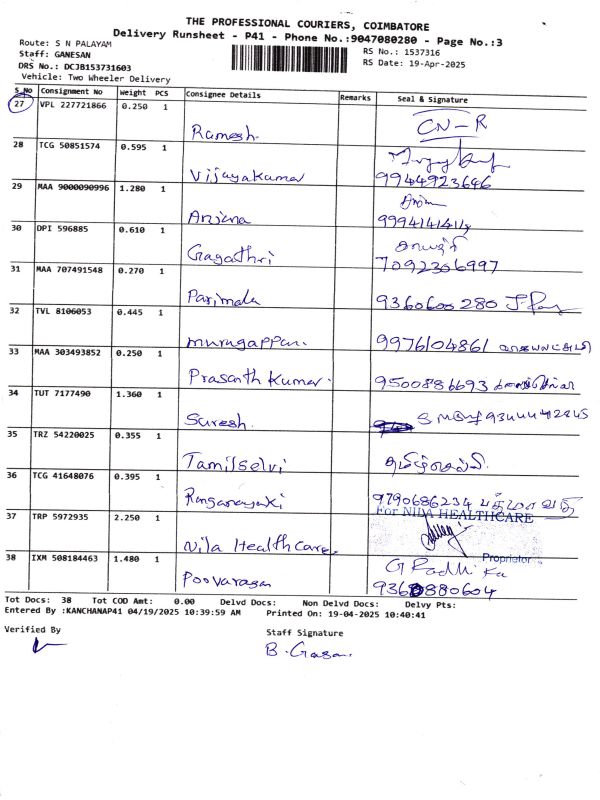 THE PROFESSIONAL COURIERS, COIMBATORE
Delivery Runsheet - P41 - Phone No.:9047080280 - Page No.:3
Route: S N PALAYAM
Staff: GANESAN
DRS No.: DCJB153731603
Vehicle: Two Wheeler Delivery
RS No.: 1537316
RS Date: 19-Apr-2025
S_No Consignment No Weight PCS Consignee Details Remarks Seal & Signature
27 VPL 227721866 0.250 1
Ramesh. CN-R
28 TCG 50851574 0.595 1
Vijayakumar 9944923646
29 MAA 9000090996 1.280 1
Anjana 9994141414
30 DPI 596885 0.610 1
Gayathri 7092306997
31 MAA 707491548 0.270 1
Parimala 9360600280
32 TVL 8106053 0.445 1
murugappan. 9976104861
33 MAA 303493852 0.250 1
Prasanth Kumar. 9500886693
34 TUT 7177490 1.360 1
Suresh. 9344442845
35 TRZ 54220025 0.355 1
Tamilselvi தமிழ்செல்வி
36 TCG 41648076 0.395 1
Ranganayaki 9790686234 பத்மாவதி
37 TRP 5972935 2.250 1
For NILA HEALTHCARE
Nila Healthcare.
Proprietor
38 IXM 508184463 1.480 1
Poovarasan G Radhika
9360880604
Tot Docs: 38 Tot COD Amt: 0.00 Delvd Docs: Non Delvd Docs: Delvy Pts:
Entered By :KANCHANAP41 04/19/2025 10:39:59 AM Printed On: 19-04-2025 10:40:41
Verified By
Staff Signature
B. Gasan.